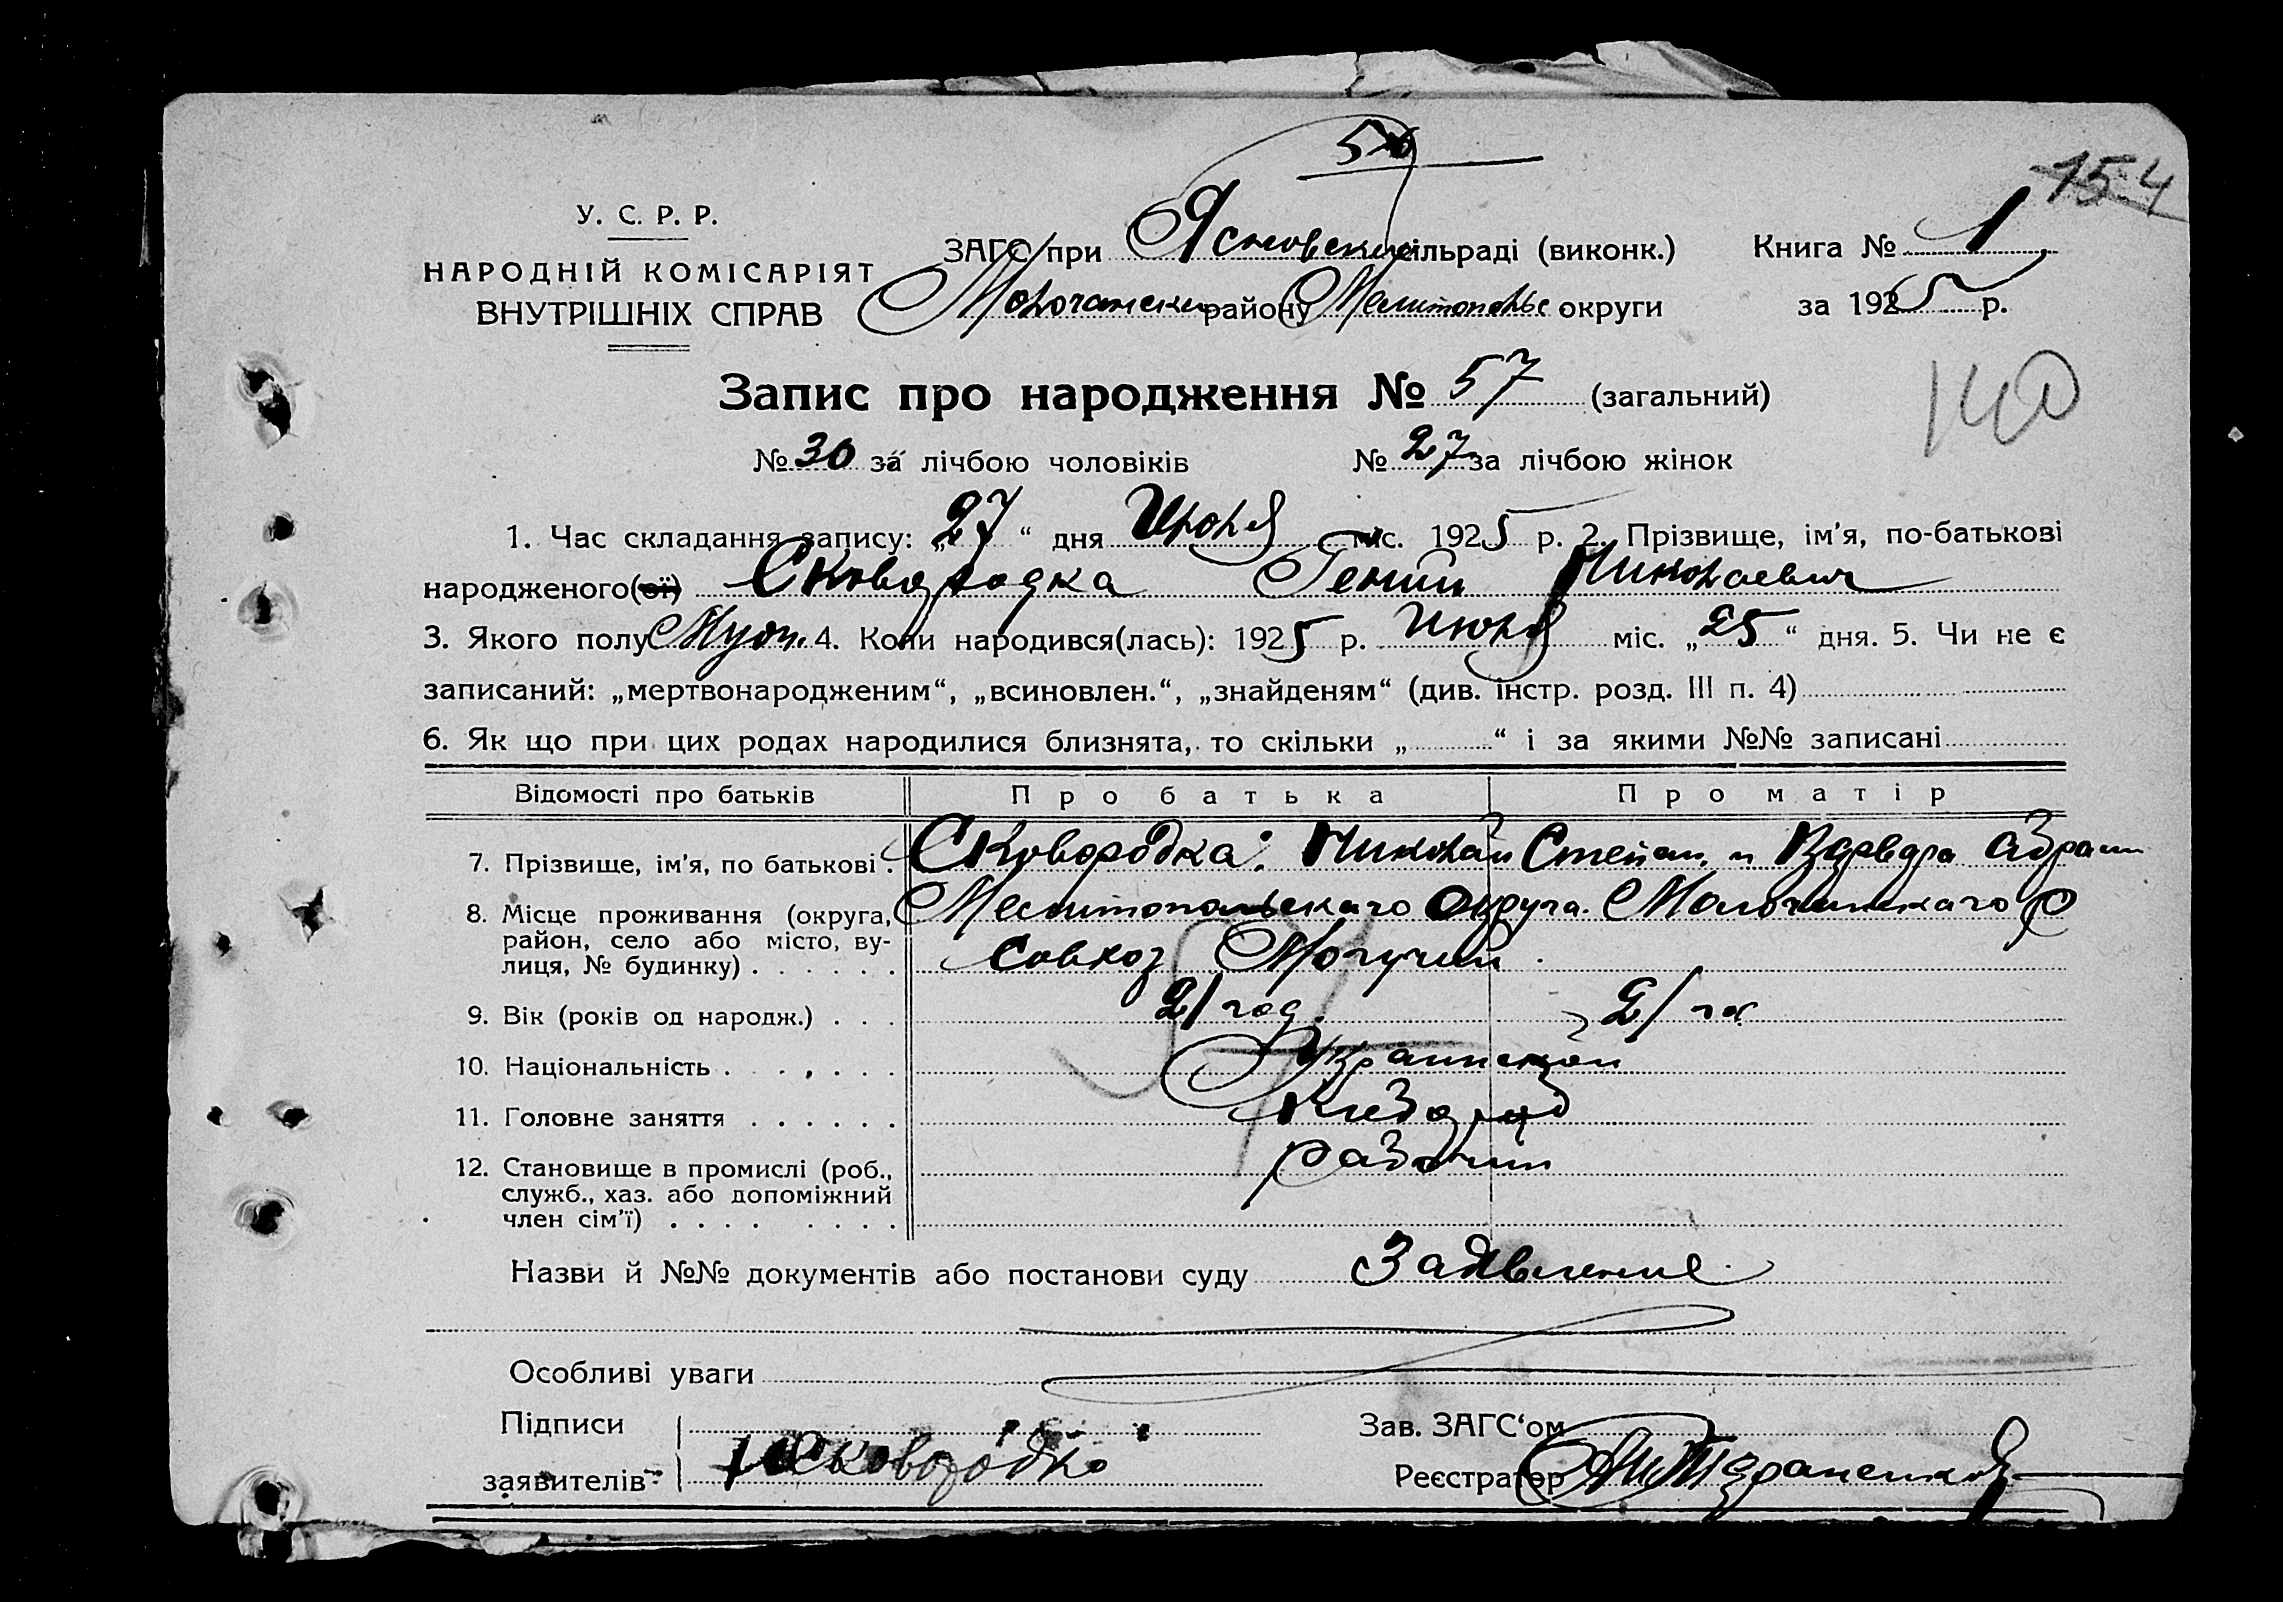 154
У. С. Р. Р.
НАРОДНІЙ КОМІСАРІЯТ
ВНУТРІШНІХ СПРАВ
ЗАГС при Ясновским сільраді (виконк.) Книга № 1
району Мелитопольс округи за 1925 р.
Запис про народження № 57 (загальний)
140
№ 30 за лічбою чоловіків № 27 за лічбою жінок
1. Час складання запису: „27“ дня Июля міс. 1925 р. 2. Прізвище, ім'я, по-батькові
народженого(ої) Сковородка Гений Николаевич
3. Якого полу Муж. 4. Коли народився(лась): 1925 р. Июля міс. „25“ дня. 5. Чи не є
записаний: „мертвонародженим“, „всиновлен.“, „знайденям“ (див. інстр. розд. III п. 4)
6. Як що при цих родах народилися близнята, то скільки „ “ і за якими №№ записані
Відомості про батьків Про батька Про матір
7. Прізвище, ім'я, по батькові . Сковородка: Николай Степан. и Варвара Абрам
8. Місце проживання (округа, Мелитопольскаго Округа. Молочанскаго р
район, село або місто, ву-
лиця, № будинку) . . . . . . Совхоз Могучий
9. Вік (років од народж.) . . . 21 год. 21 го
10. Національність . . . . . . Украинской
11. Головне заняття . . . . . . Хлебороб
12. Становище в промислі (роб., рабочий
служб., хаз. або допоміжний
член сім'ї) . . . . . . . .
Назви й №№ документів або постанови суду Заявление
Особливі уваги
Підписи Зав. ЗАГС'ом
заявителів Сковородко Реєстратор